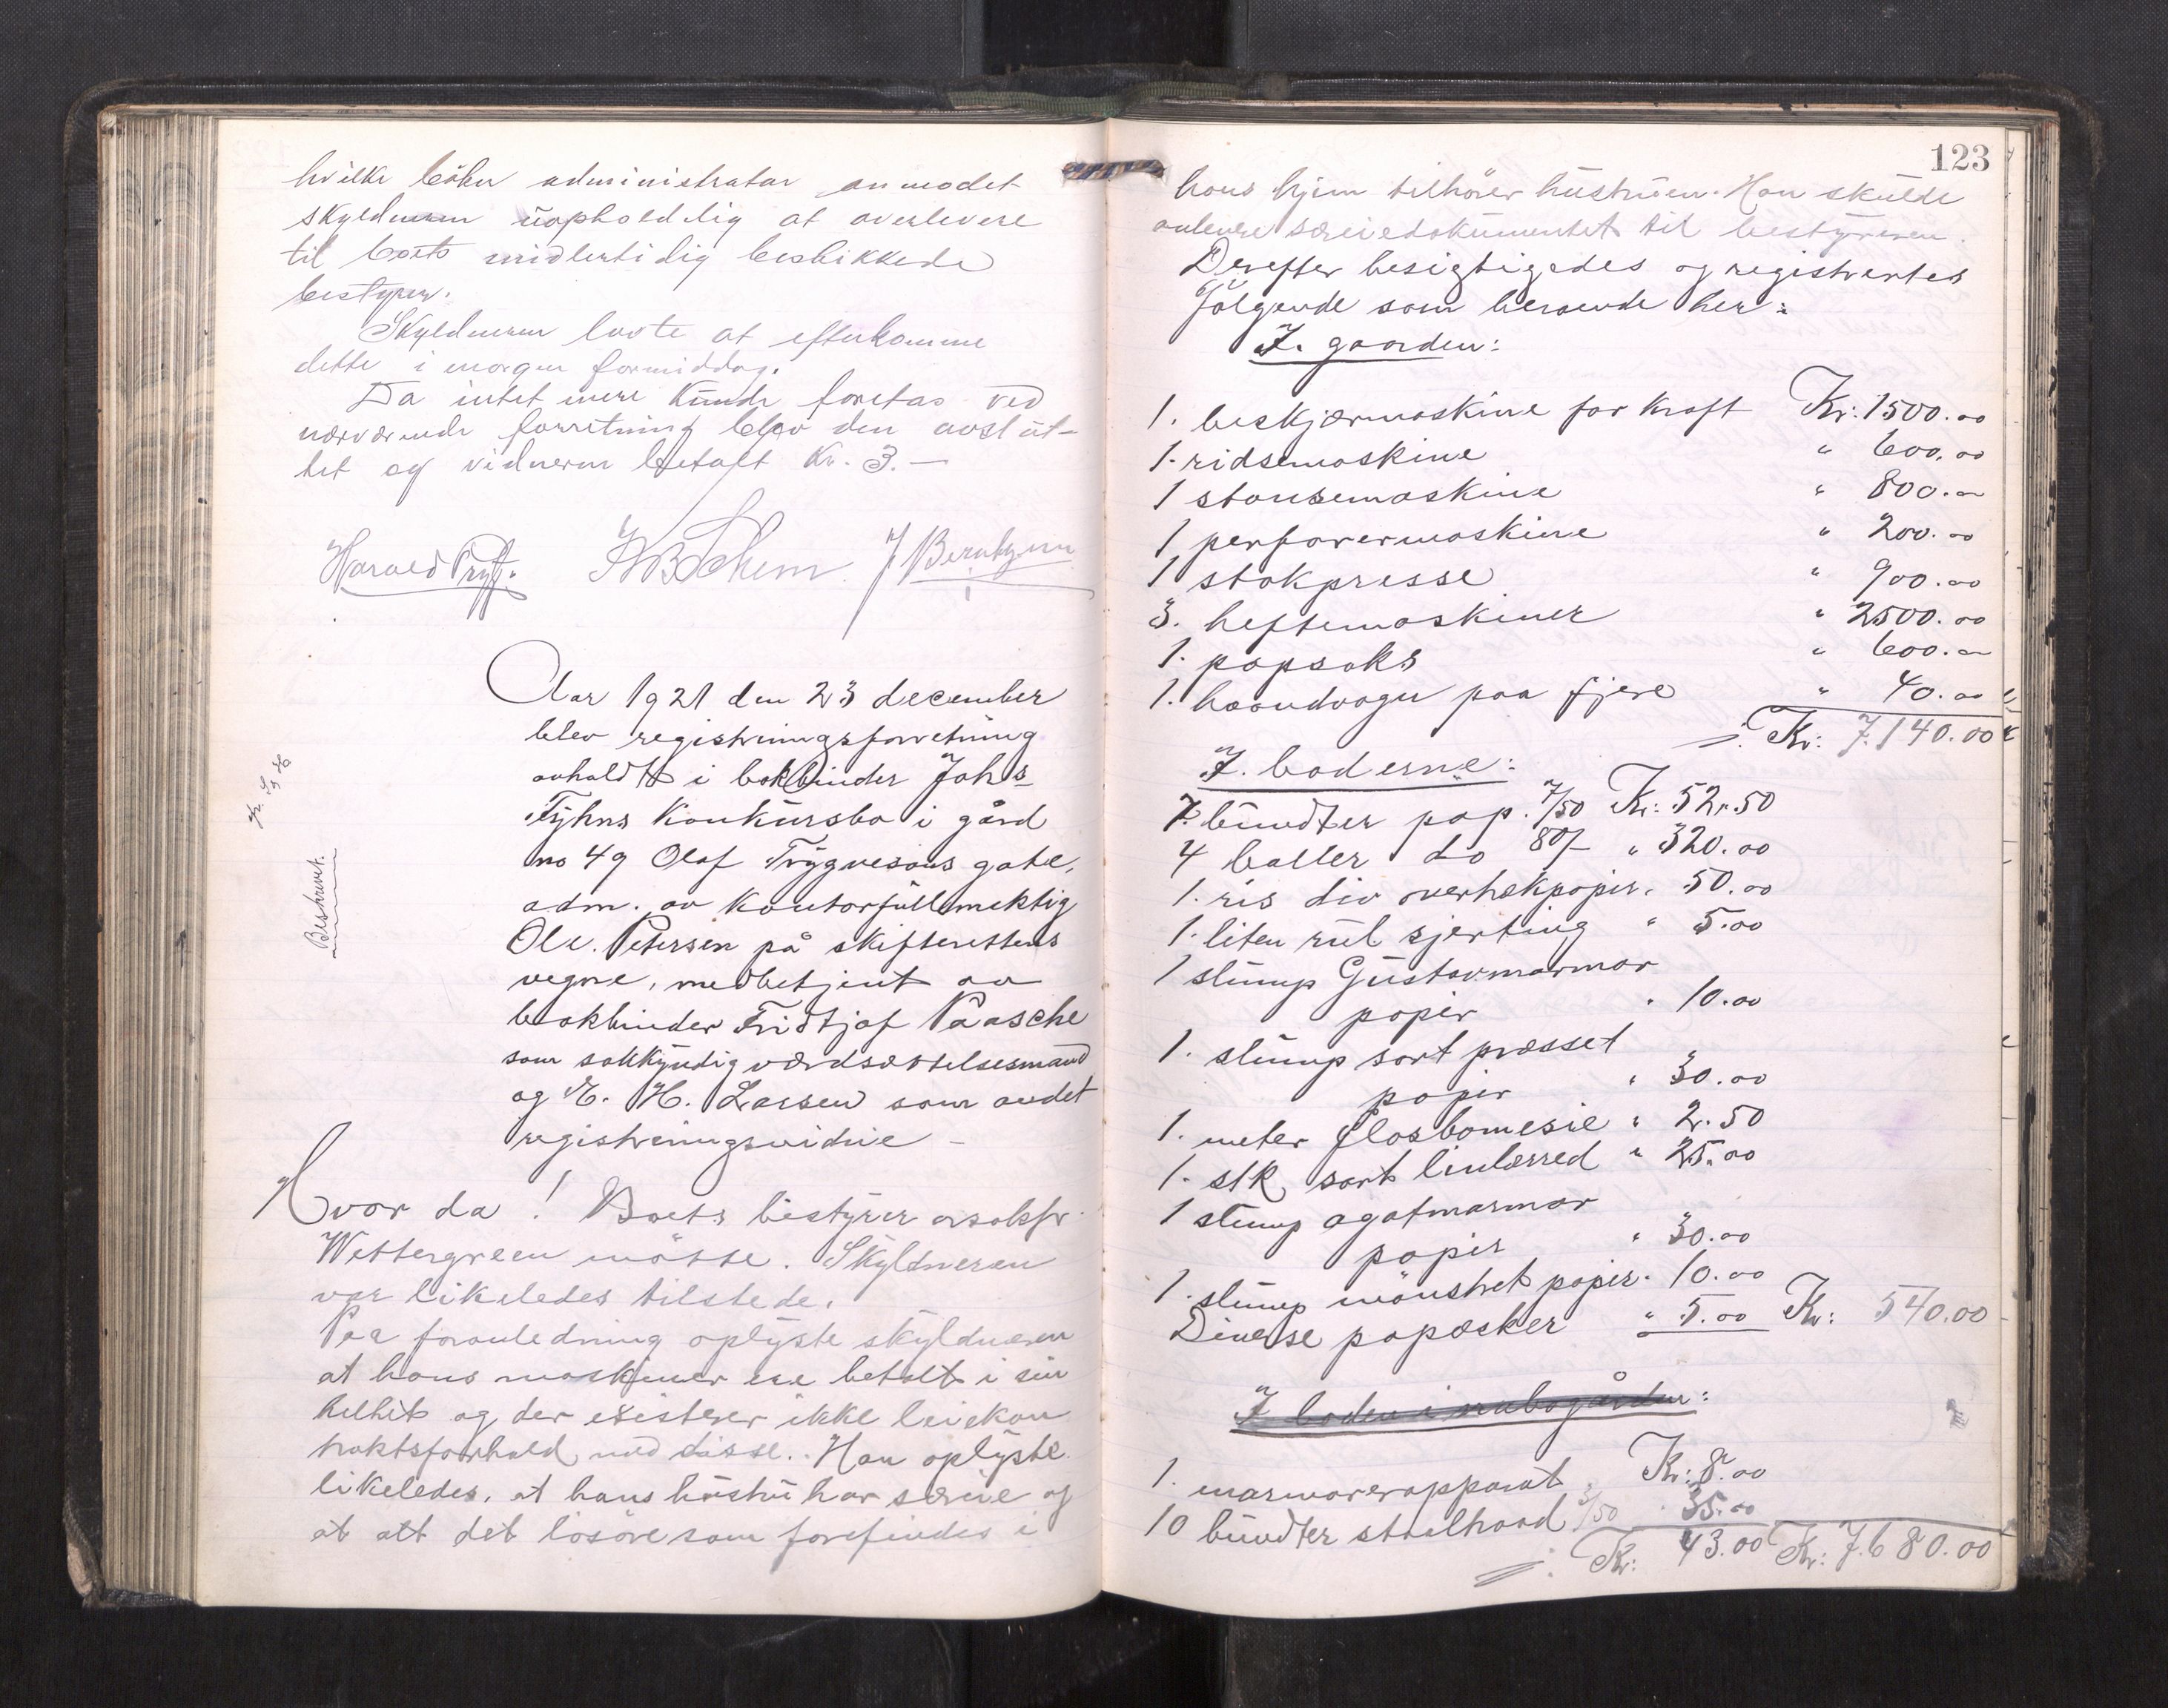 hvilke bøker administrator anmodet
skyldneren uopholdelig at overlevere
til boets midlertidig beskikkede
bestyrer.
Skyldneren lovte at efterkomme
dette i morgen formiddag.
Da intet mere kunde foretas ved
nærværende forretning blev den avslut-
tet og vidneren betalt Kr. 3.—
Harald
Aar 1921 den 23 december
blev registreringsforretning
avholdt i bokbinder Johs
Tyhns Konkursbo i gård
no 49 Olaf Trygvesøns gate,
adm. av Kontorfullmektig
Ole. Petersen på skifterettens
vegne, medbetjent av
bokbinder Fridtjof Paasche
som sakkyndig værdsættelsesmand
og E. H. Larsen som andet
registreringsvidne —
Beskrevet
Hvor da! Boets bestyrer o.r.sakfr.
Wettergreen møtte. Skyldneren
var likeledes tilstede.
Paa foranledning oplyste skyldneren
at hans maskiner er betalt i sin
helhet og der existerer ikke leiekon
traktsforhold med disse. Han oplyste
likeledes, at hans hustru har særeie og
at alt det løsøre som forefindes i
123
hans hjem tilhører hustruen. Han skulde
avlevere særeiedokumentet til bestyreren.
Derefter besigtigedes og registrertes
følgende som beroende her:
I. gaarden:
1. beskjærmaskine for kraft Kr: 1500.00
1. ridsemaskine " 600.00
1 stansemaskine " 800.00
1 perforermaskine " 200.00
1 stokpresse " 900.00
3. heftemaskiner " 2500.00
1. papsaks " 600.00
1. haandvogn paa fjere " 40.00
Kr: 7.140.00
I. boderne:
7. bundter pap. 7/50 Kr: 52.50
4 baller do 80/- " 320.00
1. ris div overtrækpapir. 50.00
1. liten rul sjerting " 5.00
1 slump Gustavmarmor
papir " 10.00
1. slump sort presset
papir " 30.00
1. meter flosbomesie " 2.50
1. stk sort linlærred " 25.00
1 slump agatmarmor
papir " 30.00
1. slump mønstret papir. 10.00
Diverse papæsker " 5.00 Kr: 540.00
I boden i nabogården:
1. marmorerapparat Kr: 8.00
10 bundter staaltraad 3/50 " 35.00
Kr: 43.00 Kr: 7.680.00